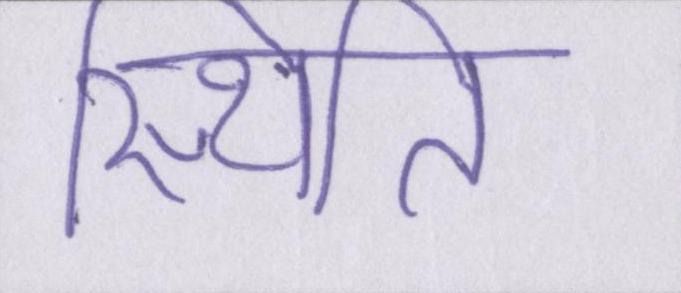 स्थिति